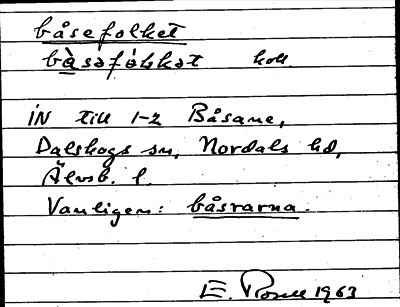 båsefolket
bàsəfólkət koll.
iN till 1-2 Båsane,
Dalskogs sn, Nordals hd,
Älvsb. l.
Vanligen: båsrarna.
E. Rosell 1963